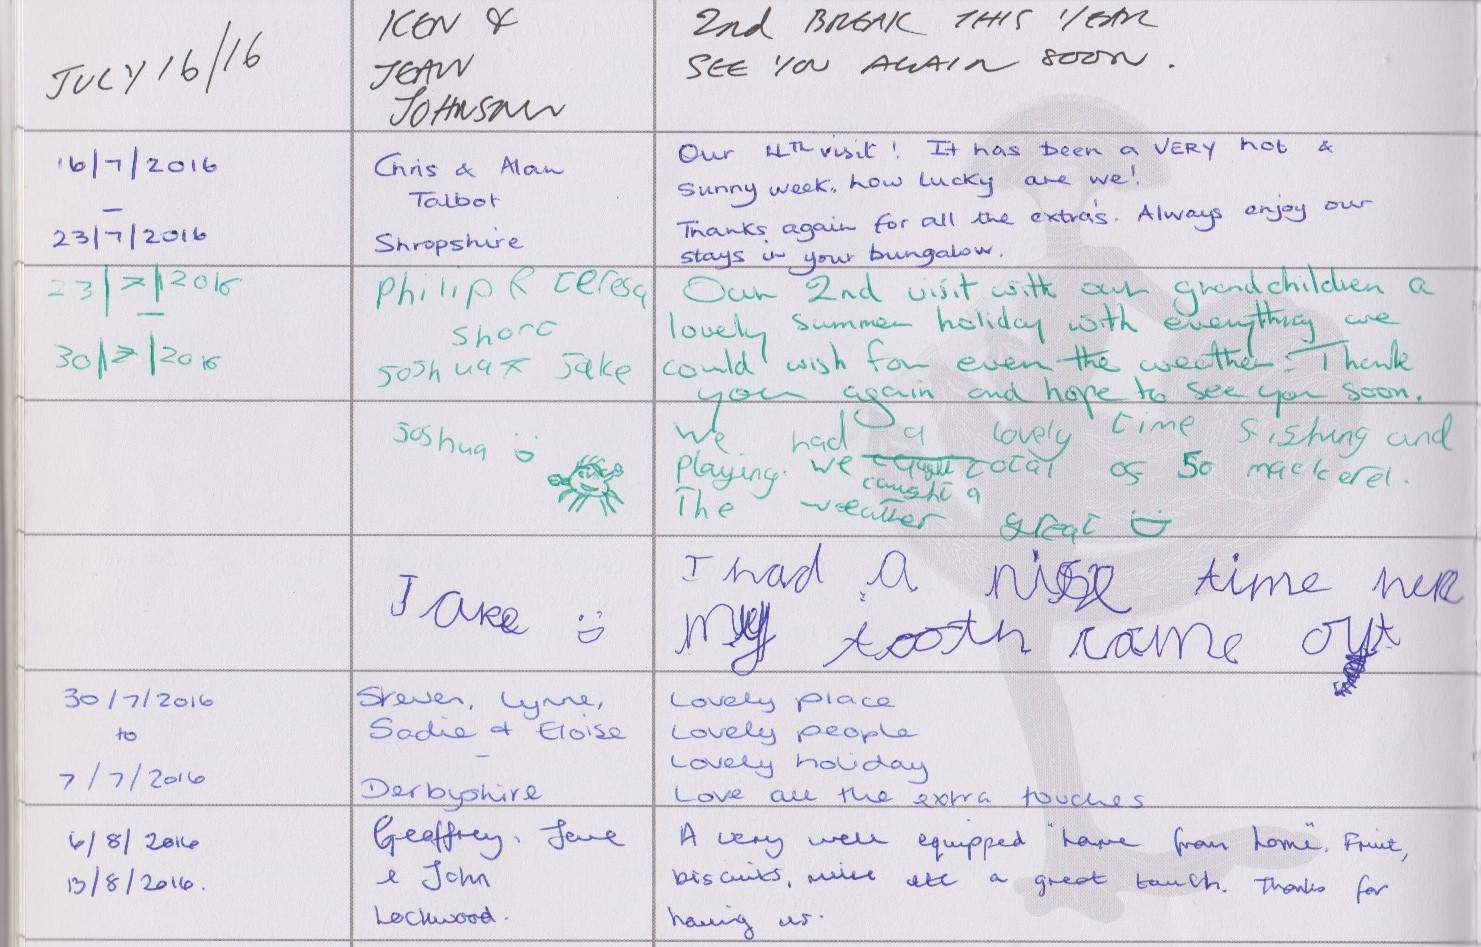 JULY 16/16
KEN &
JEAN
JOHNSON
2nd BREAK THIS YEAR
SEE YOU AGAIN SOON.
16/7/2016
–
23/7/2016
Chris & Alan
Talbot
Shropshire
Our 4th visit! It has been a VERY hot &
sunny week, how lucky are we!
Thanks again for all the extra's. Always enjoy our
stays in your bungalow.
23/7/2016
–
30/7/2016
Philip & Teresa
Short
Joshua & Jake
Our 2nd visit with our grandchildren a
lovely summer holiday with everything we
could wish for even the weather. Thank
you again and hope to see you soon.
Joshua
We had a lovely time fishing and
playing. we caught total of 50 mackerel.
caught a
The weather great
Jake
I had a nise time here
my tooth came out
30/7/2016
to
7/7/2016
Steven, Lynne,
Sadie & Eloise
–
Derbyshire
Lovely place
Lovely people
Lovely holiday
Love all the extra touches
6/8/2016
13/8/2016.
Geoffrey, Jane
& John
Lockwood.
A very well equipped "home from home". Fruit,
biscuits, milk etc a great touch. Thanks for
having us.